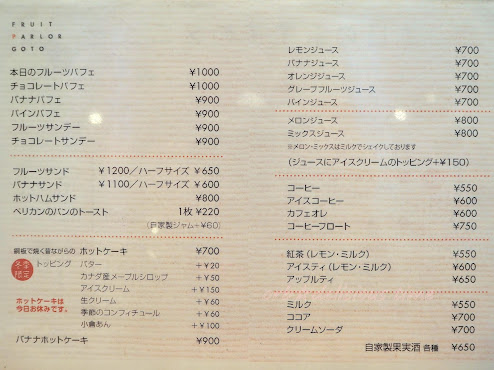 FRUIT
PARLOR
GOTO
本日のフルーツパフェ ¥1000
チョコレートパフェ ¥1000
バナナパフェ ¥900
パインパフェ ¥900
フルーツサンデー ¥900
チョコレートサンデー ¥900
フルーツサンド ¥1200/ハーフサイズ ¥650
バナナサンド ¥1100/ハーフサイズ ¥600
ホットハムサンド ¥800
ペリカンのパンのトースト 1枚 ¥220
(自家製ジャム+¥60)
銅板で焼く昔ながらの ホットケーキ ¥700
冬季限定
トッピング バター +¥20
カナダ産メープルシロップ +¥50
アイスクリーム +¥150
生クリーム +¥60
季節のコンフィチュール +¥60
小倉あん +¥100
ホットケーキは
今日お休みです。
バナナホットケーキ ¥900
レモンジュース ¥700
バナナジュース ¥700
オレンジジュース ¥700
グレープフルーツジュース ¥700
パインジュース ¥700
メロンジュース ¥800
ミックスジュース ¥800
※メロン・ミックスはミルクでシェイクしております
(ジュースにアイスクリームのトッピング+¥150)
コーヒー ¥550
アイスコーヒー ¥600
カフェオレ ¥600
コーヒーフロート ¥750
紅茶(レモン・ミルク) ¥550
アイスティ(レモン・ミルク) ¥600
アップルティ ¥650
ミルク ¥550
ココア ¥700
クリームソーダ ¥700
自家製果実酒 各種 ¥650